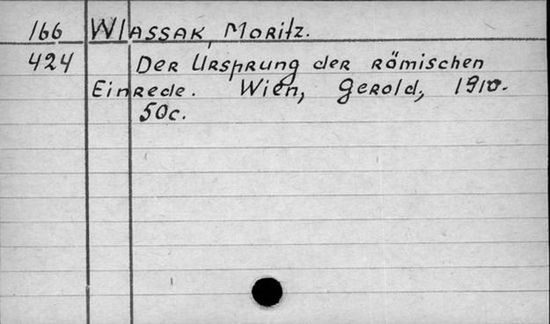 166 Wlassak, Moritz.
424 Der Ursprung der römischen
Einrede. Wien, Gerold, 1910.
50c.